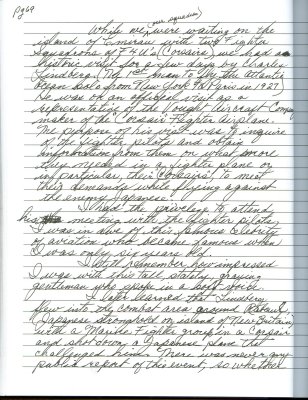 Pg 69
(our squadron)
While we were waiting on the
island of Emirau with two Fighter
Squadrons of F4U's (Corsairs) we had a
historic visit for a few days by Charles
Lindberg, The 1st man to fly the Atlantic
ocean solo from New York to Paris in 1927.
He was on an official visit as a
representative of the Vought Aircraft Company
maker of the Corsair Fighter Airplane.
The purpose of his visit was to inquire
of the fighter pilots and obtain
information from them on what more
they needed in a fighter plane or
in particular, their Corsairs, to meet
their demands while flying against
the enemy Japanese.
I had the privilege to attend
his meeting with the fighter pilots,
I was in awe of this famous celebrity
of aviation who became famous when
I was only six years old.
I still remember how impressed
I was with this tall, stately, graying
gentleman who spoke in a soft voice.
I later learned that Lindberg
flew into the combat area around Rabaul,
(Japanese stronghold on island of New Britain)
with a Marine Fighter group in a Corsair
and shot down a Japanese plane that
challenged him. There was never any
public report of this event, so whether